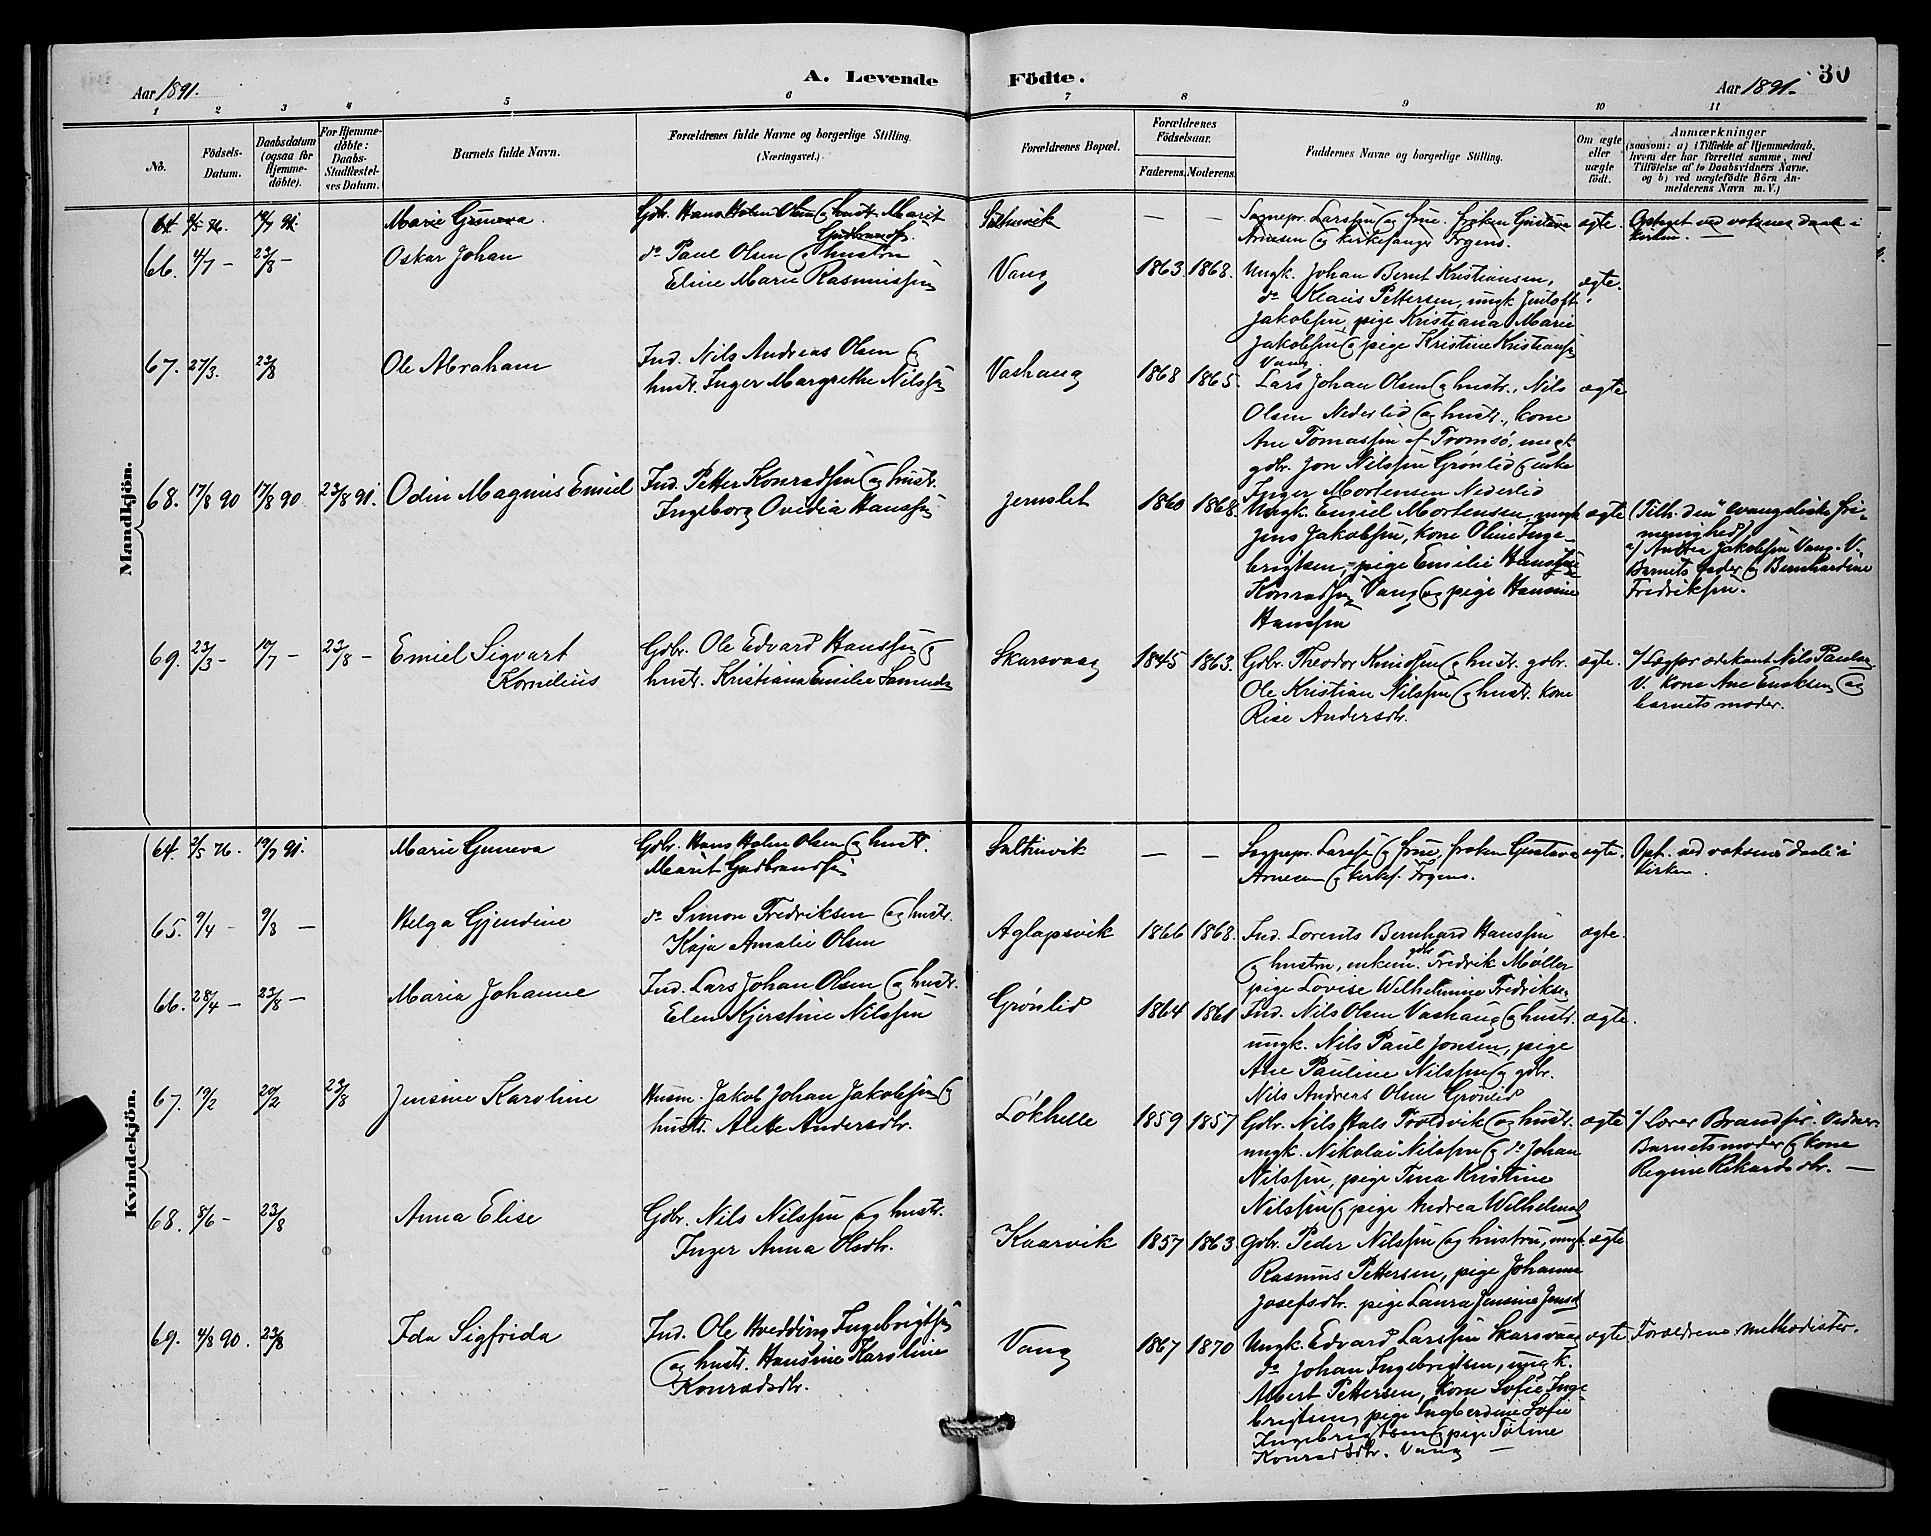 Aar 1891.
A. Levende Födte.
Aar 1891.
30
1 2 3 4 5 6 7 8 9 10 11
No.
Födsels-Datum.
Daabsdatum (ogsaa for Hjemmedöbte).
For Hjemmedöbte: Daabs-Stadfæstelses Datum.
Barnets fulde Navn.
Forældrenes fulde Navne og borgerlige Stilling. (Næringsvei.)
Forældrenes Bopæl.
Forældrenes Födselsaar.
Faderens. Moderens.
Faddernes Navne og borgerlige Stilling.
Om ægte eller uægte födt.
Anmærkninger (saasom: a) i Tilfælde af Hjemmedaab, hvem der har forrettet samme, med Tilföielse af to Daabsvidners Navne, og b) ved uægtefödte Börn Anmelderens Navn m. V.)
Mandkjön.
64. 2/5 76. 19/7 91. Marie Guneva. Gbr. Hans Holm Olsen og hustr. Marit Gudbrandsd. Saltenvik — — Sognepr. Larssen og frue, frøken Gustava Arnesen og kirkesanger Fygens. ægte. Optaget ved voksnes daab i kirken.
66. 4/7 – 23/8 – Oskar Johan
do Paul Olsen og hustru
Eline Marie Rasmussen
Vang 1863. 1868.
Ungk. Johan Bernt Kristiansen,
do Klaus Pettersen, ungk.
Jakobsen, pige Kristiana Marie
Jakobsen og pige Kristine Kristians
Vang.
ægte.
67. 27/3. 23/8 Ole Abraham
Ind. Nils Andreas Olsen og
hustr. Inger Margrethe Nilssen
Vashaug 1868 1865.
Lars Johan Olsen og hustr., Nils
Olsen Nederlid og hustr., kone
Ane Tomassen af Tromsö, ungk.
gdbr. Jon Nilssen Grönlid og enke
Inger Mortensen Nederlid
ægte
68. 17/8 90 17/8 90. 23/8 91. Odin Magnus Emiel
Ind. Petter Konradsen og hustr.
Ingeborg Ovidia Hanssen
Jernslet 1860 1868.
Ungk. Emiel Mortensen, ungk.
Jens Jakobsen, kone Oline Inge-
brigtsen, pige Emilie Hanssen
Konradsen Vang og pige Hansine
Hanssen
ægte
(Tilh. den evangeliske fri-
menighed)
a) Andrea Jakobsen Vang. V.
Barnets fader og Bernhardine
Fredriksen.
69. 23/3 – 10/7 – 23/8 – Emiel Sigvart
Kornelius
Gdbr. Ole Edvard Hanssen og
hustr. Kristiana Emilie Samuels
Skarsvaag 1845 1863.
Gdbr. Theodor Knudssen og hustr. gdbr.
Ole Kristian Nilssen og hustr. kone
Rise Andersdtr.
ægte.
a) Lægprædikant Nils Paulsen
V. kone Ane Eriksen og
barnets moder.
Kvindekjön.
64. 2/5 76. 19/7 91. Marie Guneva
Gdbr. Hans Holm Olsen og hustr.
Marit Gudbrandsen
Saltenvik — —
Sognepr. Larssen og frue, frøken Gustava
Arnesen og kirkes. Fygens.
ægte.
Opt. ved voksnes daab i
kirken.
65. 9/4 – 9/8 – Helga Gjendine
do Simon Fredriksen og hustr.
Kaja Amalie Olsen
Aglapsvik 1866 1868.
Ind. Lorents Bernhard Hanssen
og hustru, enkem. gdbr. Fredrik Møller
pige Lovise Wilhelmine Fredriksen
ægte.
66. 28/4 – 23/8 – Maria Johanne
Ind. Lars Johan Olsen og hustr.
Elen Kjerstine Nilssen
Grönlid 1864 1861
Ind. Nils Olsen Vashaug og hustr.
ungk. Nils Paul Jonsen, pige
Ane Pauline Nilssen og gdbr.
Nils Andreas Olsen Grönlid
ægte.
67. 19/2 20/2 23/8 Jensine Karoline
Husm. Jakob Johan Jakobsen og
hustr. Alette Andersdtr.
Lökhelle 1859 1857
Gdbr. Nils Hals Tooldvik og hustr.
ungk. Nikolai Nilssen og do Johan
Nilssen, pige Tina Kristine
Nilssen og pige Andrea Wilhelmsen
ægte
a) Lærer Brandsen. Vidner
Barnets moder og kone
Regine Rikardsdtr. —
68. 8/6 – 23/8 Anna Elise
Gdbr. Nils Nilssen og hustr.
Inger Anna Olsdtr.
Kaarvik 1857 1863
Gdbr. Peder Nilssen og hustru, ungk.
Rasmus Pettersen, pige Johanna
Josefsdtr. pige Laura Jensine Jensd.
ægte
69. 4/8 90. 23/8 Ida Sigfrida
Ind. Ole Hvedding Ingebrigtsen
og hustr. Hansine Karoline
Konradsdtr.
Vang 1867 1870
Ungk. Edvard Larssen Skarsvaag
do Johan Ingebrigtsen, ungk.
Albert Pettersen, kone Sofie Inge-
brigtsen, pige Ingberdine Sofie
Ingebrigtsen og pige Toline
Konradsdtr. Vang —
ægte
Forældrene methodister.